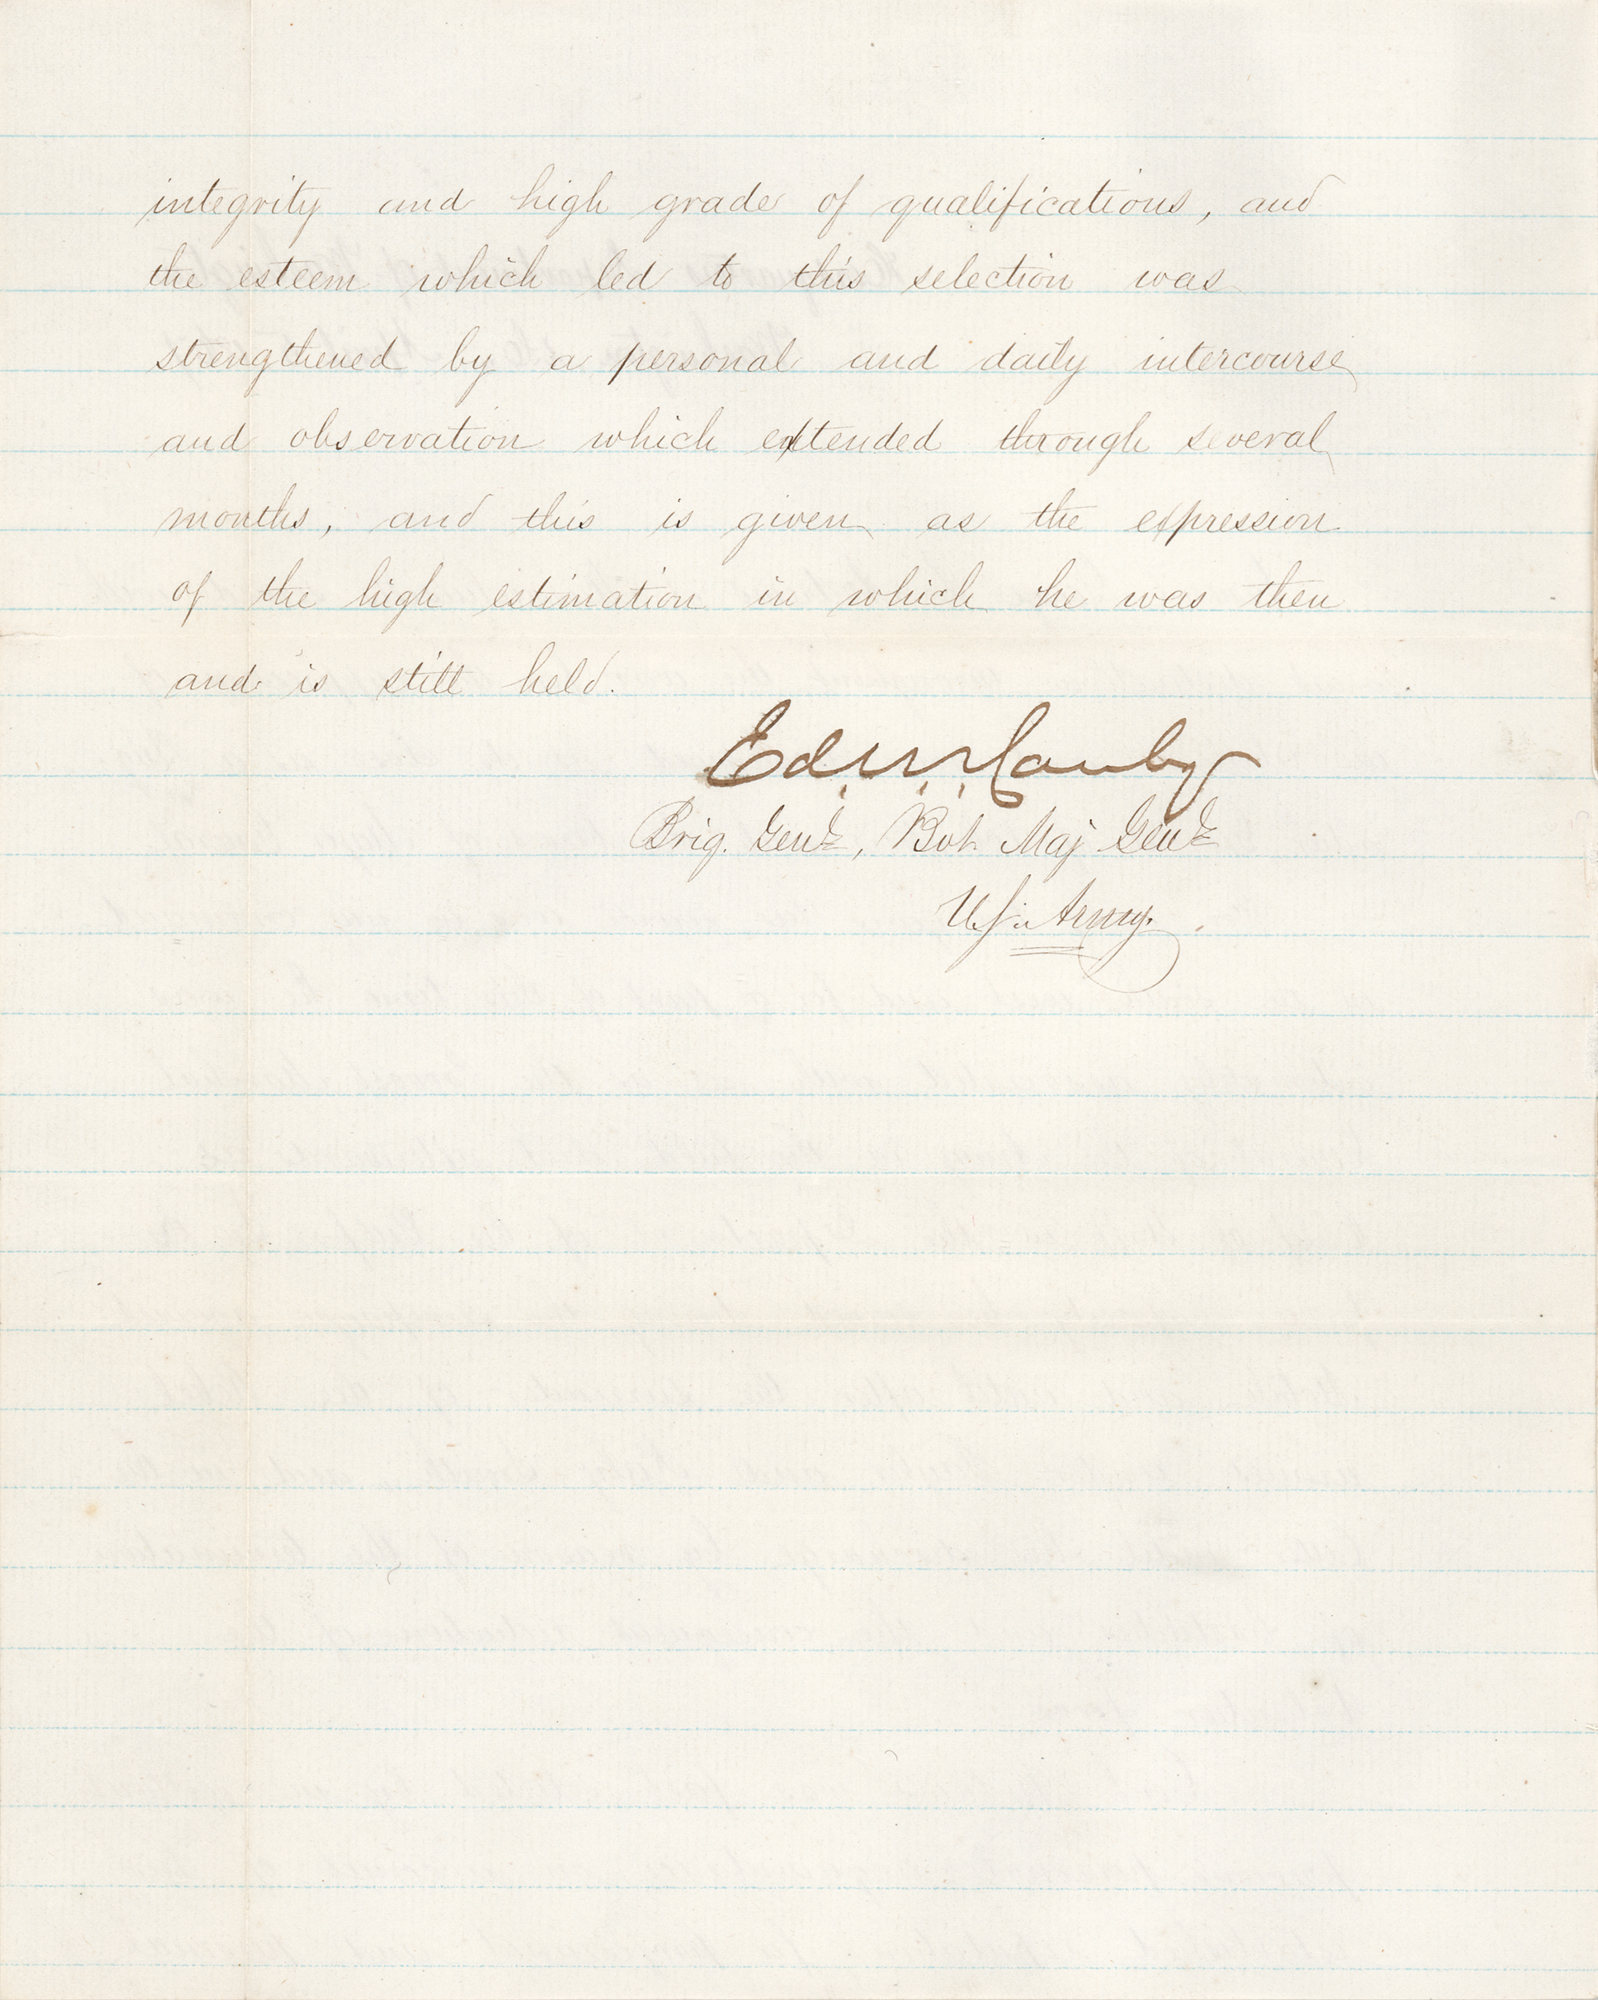 integrity and high grade of qualifications, and
the esteem which led to this selection was
strengthened by a personal and daily intercourse
and observation which extended through several
months, and this is given as the expression
of the high estimation in which he was then
and is still held.
Ed R S Canby
Brig. Genl, Bvt. Maj Genl
U.S. Army.